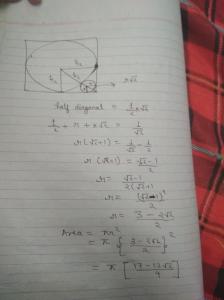 1/2
1/2
r√2
half diagonal = 1/2 × √2
1/2 + r + r√2 = 1/√2
r(√2+1) = 1/√2 - 1/2
r(√2+1) = √2-1/2
r = √2-1/2(√2+1)
r = (√2-1)²/2
r = 3 - 2√2/2
Area = πr²
= π [3-2√2/2]²
= π [17-12√2/4]